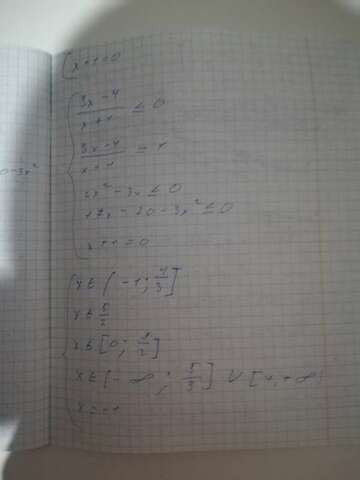 x+1=0
(3x-4)/(x+1) ≤ 0
(3x-4)/(x+1) =
x²-3x ≤ 0
17x-20-3x² ≤ 0
x+1=0
x ∈ (-1; 4/3]
x ∈ 5/2
x ∈ [0; ]
x ∈ [-∞; 5/3] ∪ [4,+∞
x=-1